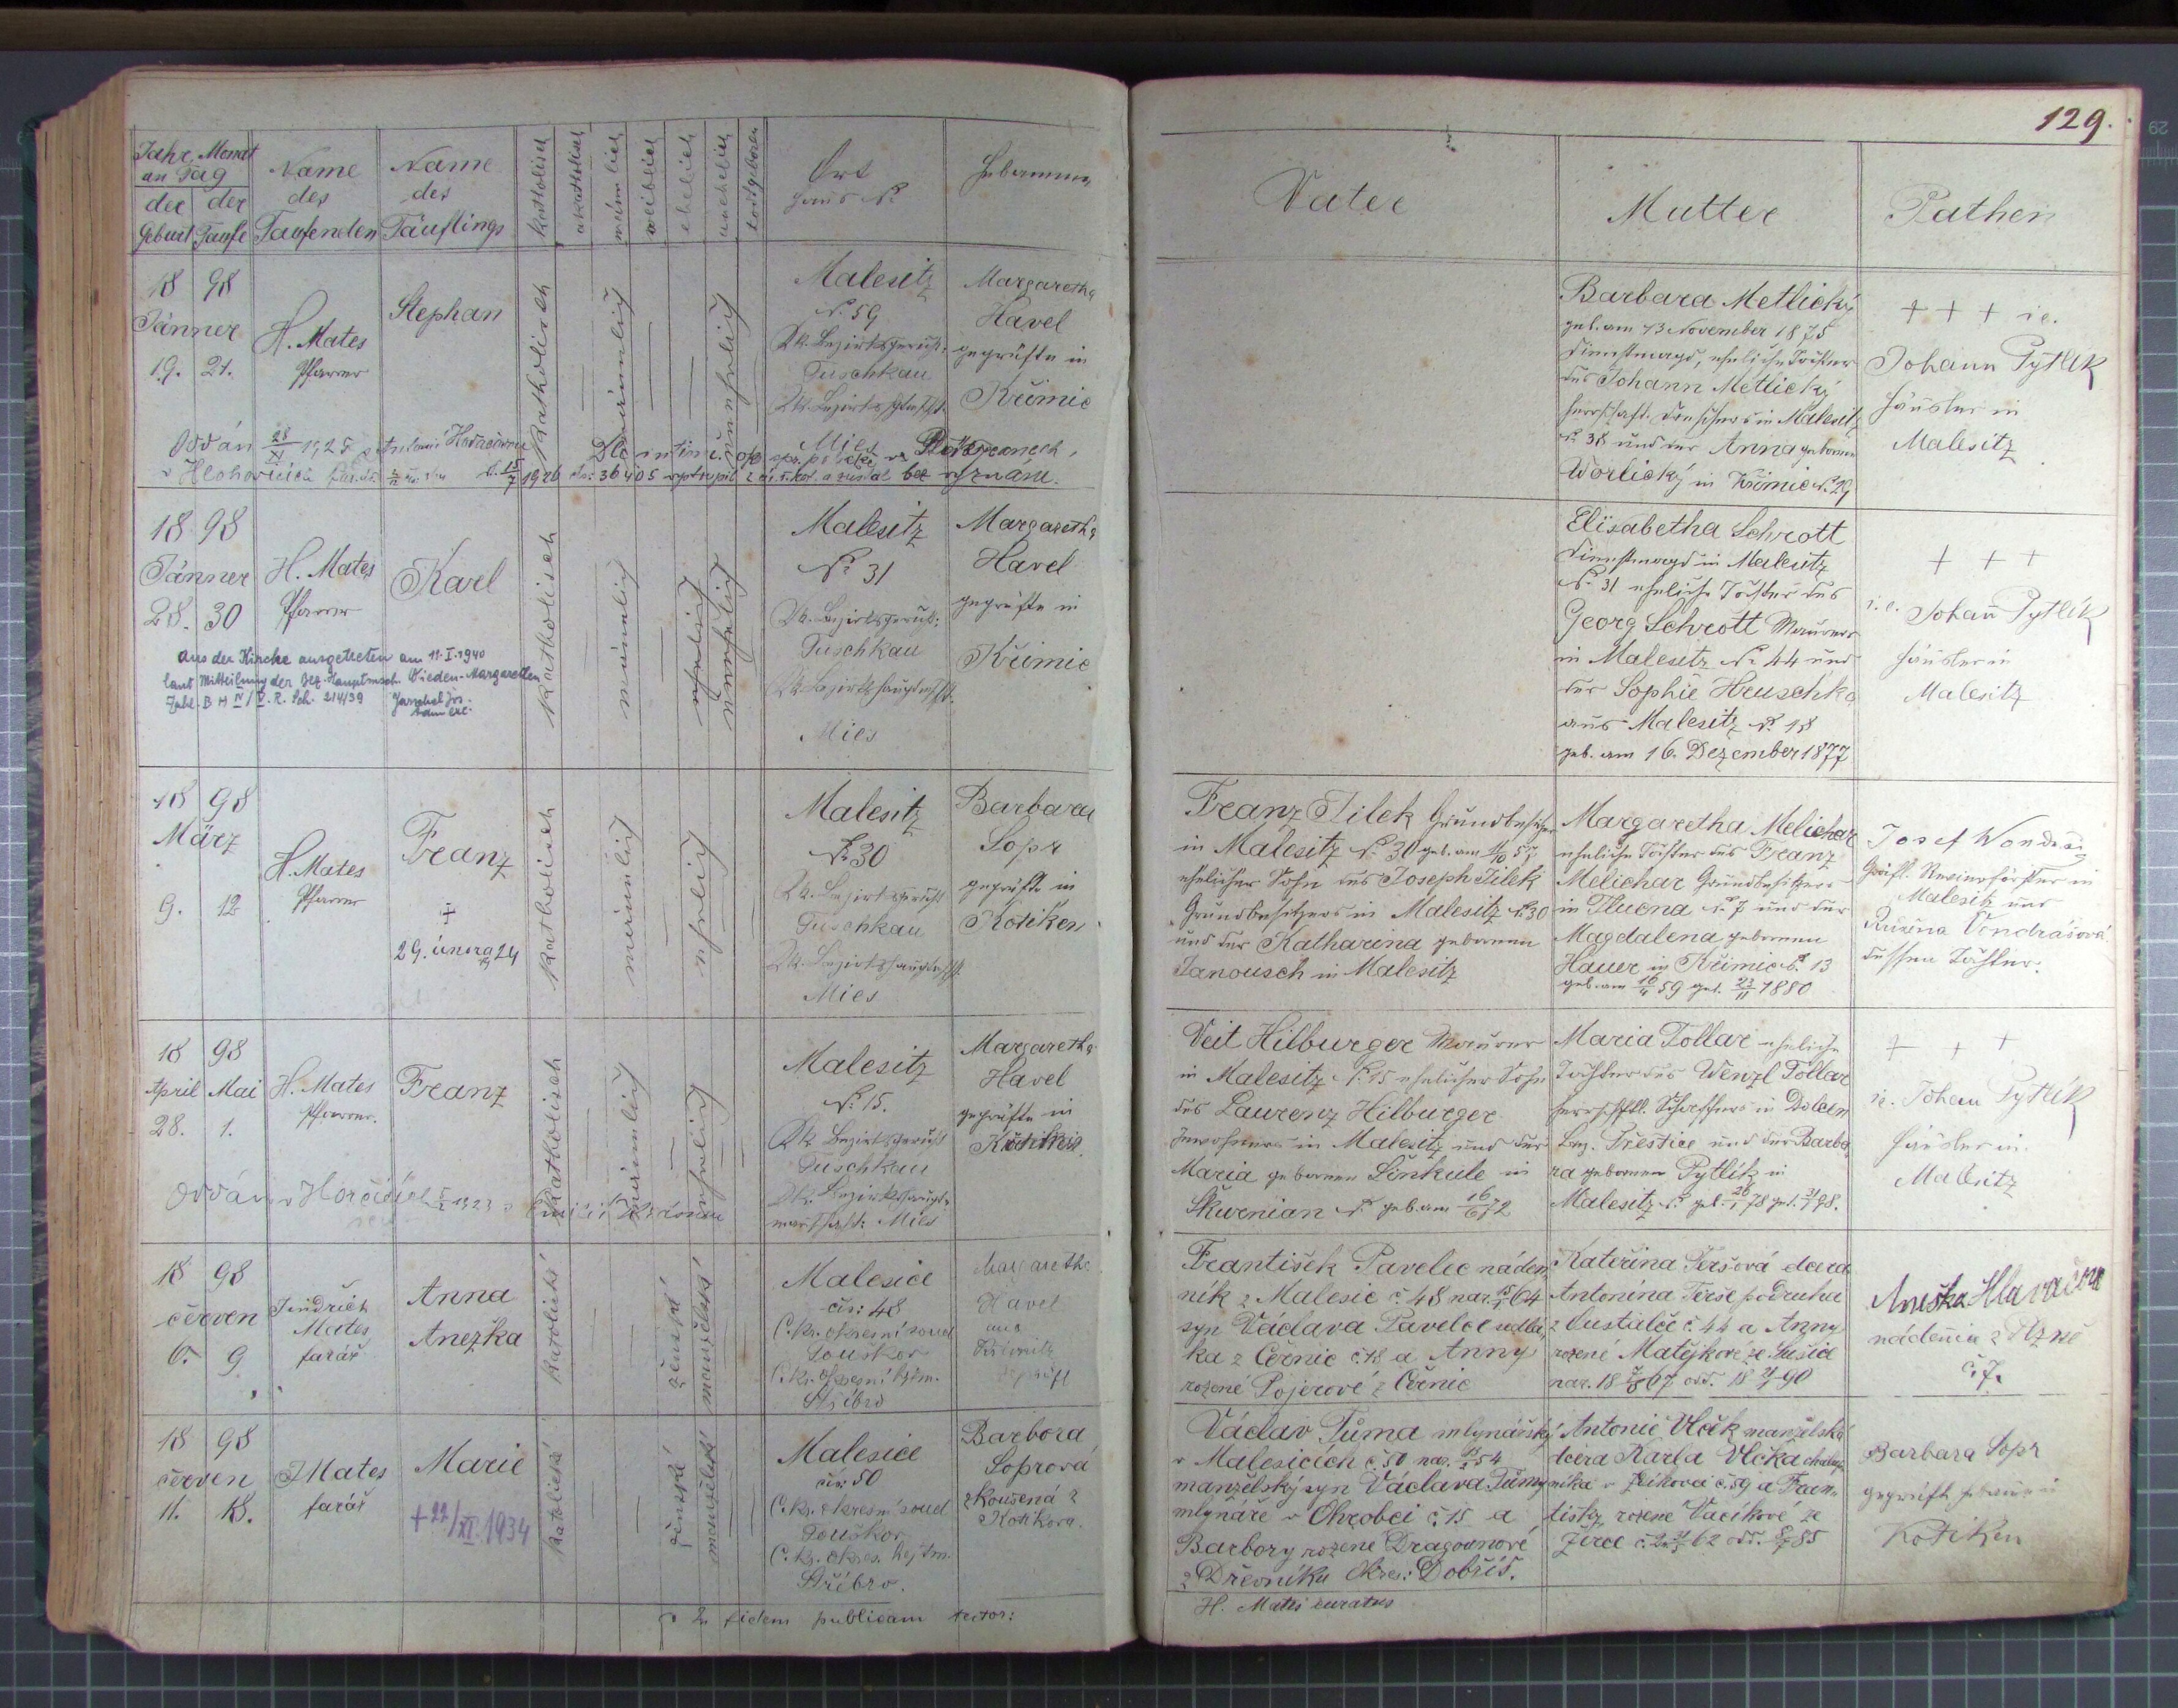 129.
Jahr, Monat
an Tag
der der
Geburt Taufe
Name
des
Taufenden
Name
des
Täuflings
Katholisch
akatholisch
männlich
weiblich
ehelich
unehelich
todtgeboren
Ort
Haus N.
Hebamme
Vater
Mutter
Pathen
18 98
Jänner
19. 21.
H. Mates
Pfarrer
Stephan
Katholisch
männlich
unehelich
Malesitz
N. 59
K.k. Bezirksgericht:
Tuschkau
Mies
Margaretha
Havel
geprüfte in
Křimic
Barbara Metlický
geb. am 13 November 1875
Dienstmagd, eheliche Tochter
des Johann Metlický
herrschaft. in Malesitz
N. 38 und der Anna geborenen
Worlický in Křimic N. 29
+ + + ie.
Johann Pytlík
Häusler in
Malesitz
Oddán 28/XI 1925
v Hlohovicích
15/7 1926 vystoupil z a zůstal bez vyznání.
18 98
Jänner
28. 30
H. Mates
Pfarrer
Karl
Katholisch
männlich
ehelich
unehelich
Malesitz
N. 31
K.k. Bezirksgericht:
Tuschkau
K.k. Bezirkshauptmschft.
Mies
Margaretha
Havel
geprüfte in
Křimic
Elisabetha Schrott
Dienstmagd in Malesitz
N. 31 eheliche Tochter des
Georg Schrott Maurers
in Malesitz N. 44 und
der Sophie Hruschka
aus Malesitz N. 18
geb. am 16. Dezember 1877
+ + +
i.e. Johann Pytlík
Häusler in
Malesitz
Aus der Kirche ausgetreten am 11.I.1940
laut Mitteilung der Bez. Hauptmsch. Wieden-Margareten
Zahl B H IV/V. R. Sch. 214/39
18 98
März
9. 12
H. Mates
Pfarrer
Franz
+
29. února
Katholisch
männlich
ehelich
Malesitz
N. 30
K.k. Bezirksgericht
Tuschkau
K.k. Bezirkshauptmschft.
Mies
Barbara
Sopr
geprüfte in
Kotiken
Franz Jilek Grundbesitzer
in Malesitz N. 30 geb. am 4/10 57,
ehelicher Sohn des Joseph Jilek
Grundbesitzers in Malesitz N. 30
und der Katharina geborenen
Janousch in Malesitz
Margaretha Melichar
eheliche Tochter des Franz
Melichar Grundbesitzers
in Tlucna N. 7 und der
Magdalena geborenen
Hauer in Křimic N. 13
geb. am 16/4 59 get. 23/11 1880
Josef Wondraš
Gräfl. Revierförster in
Malesitz und
Růžena Vondrášová
dessen Tochter.
18 98
April Mai
28. 1.
H. Mates
Pfarrer.
Franz
Katholisch
männlich
ehelich
Malesitz
N. 15.
K.k. Bezirksgericht
Tuschkau
K.k. Bezirkshaupt-
mannschaft: Mies
Margaretha
Havel
geprüfte in
Veit Hilburger Maurer
in Malesitz N. 15 ehelicher Sohn
des Laurenz Hilburger
Inwohners in Malesitz und der
Maria geborenen Sinkule in
Skurnian N. geb. am 16/6 72
Maria Tollar eheliche
Tochter des Wenzl Tollar
herrschftl. Schaffers in Dolcen
Bez. Přestice und der Barba-
ra geborenen Pytlik in
Malesitz N. geb. 26/1 78 get. 31/1 98.
+ + +
ie. Johann Pytlík
Häusler in
Malesitz
Oddán v
18 98
červen
6. 9
Jindřich
Mates
farář
Anna
Anežka
katolické
ženské
manželské
Malesice
čís: 48
C.k. okresní soud
Touškov
C.k. okresní hejtm.
Stříbro
Margaretha
Havel
aus
geprüft
František Pavelec náden-
ník z Malesic č. 48 nar. 64
syn Václava Pavelce sedlá-
ka z Černic č. 18 a Anny
rozené Pojerové z Černic
Kateřina Teršová dcera
Antonína Terše podruha
č. 44 a Anny
rozené Matějkové ze Sušic
nar. 18 67 odd. 18 90
Anežka Hlaváčová
nádenice z Plzně
č. 7.
18 98
červen
11. 18.
J Mates
farář
Marie
+ 22/XI. 1934
katolické
ženské
manželské
Malesice
čís. 50
C.k. okresní soud
Touškov
C.k. okres. hejtm.
Stříbro.
Barbora
Soprová
zkoušená z
Kotikova.
Václav Tuma mlynářský
v Malesicích č. 50 nar. 54
manželský syn Václava Tůmy
mlynáře v Ohrobci č. 15 a
Barbory rozené Dragounové
z Dřevníku Okres: Dobříš.
Antonie Vlček manželská
dcera Karla Vlčka chalup-
níka v č. 59 a Fran-
tišky rozené Vacíkové ze
č. 2 62 odd. 85
Barbara Sopr
geprüfte Hebamme in
Kotiken
fidem publicam
H. Mates curatus